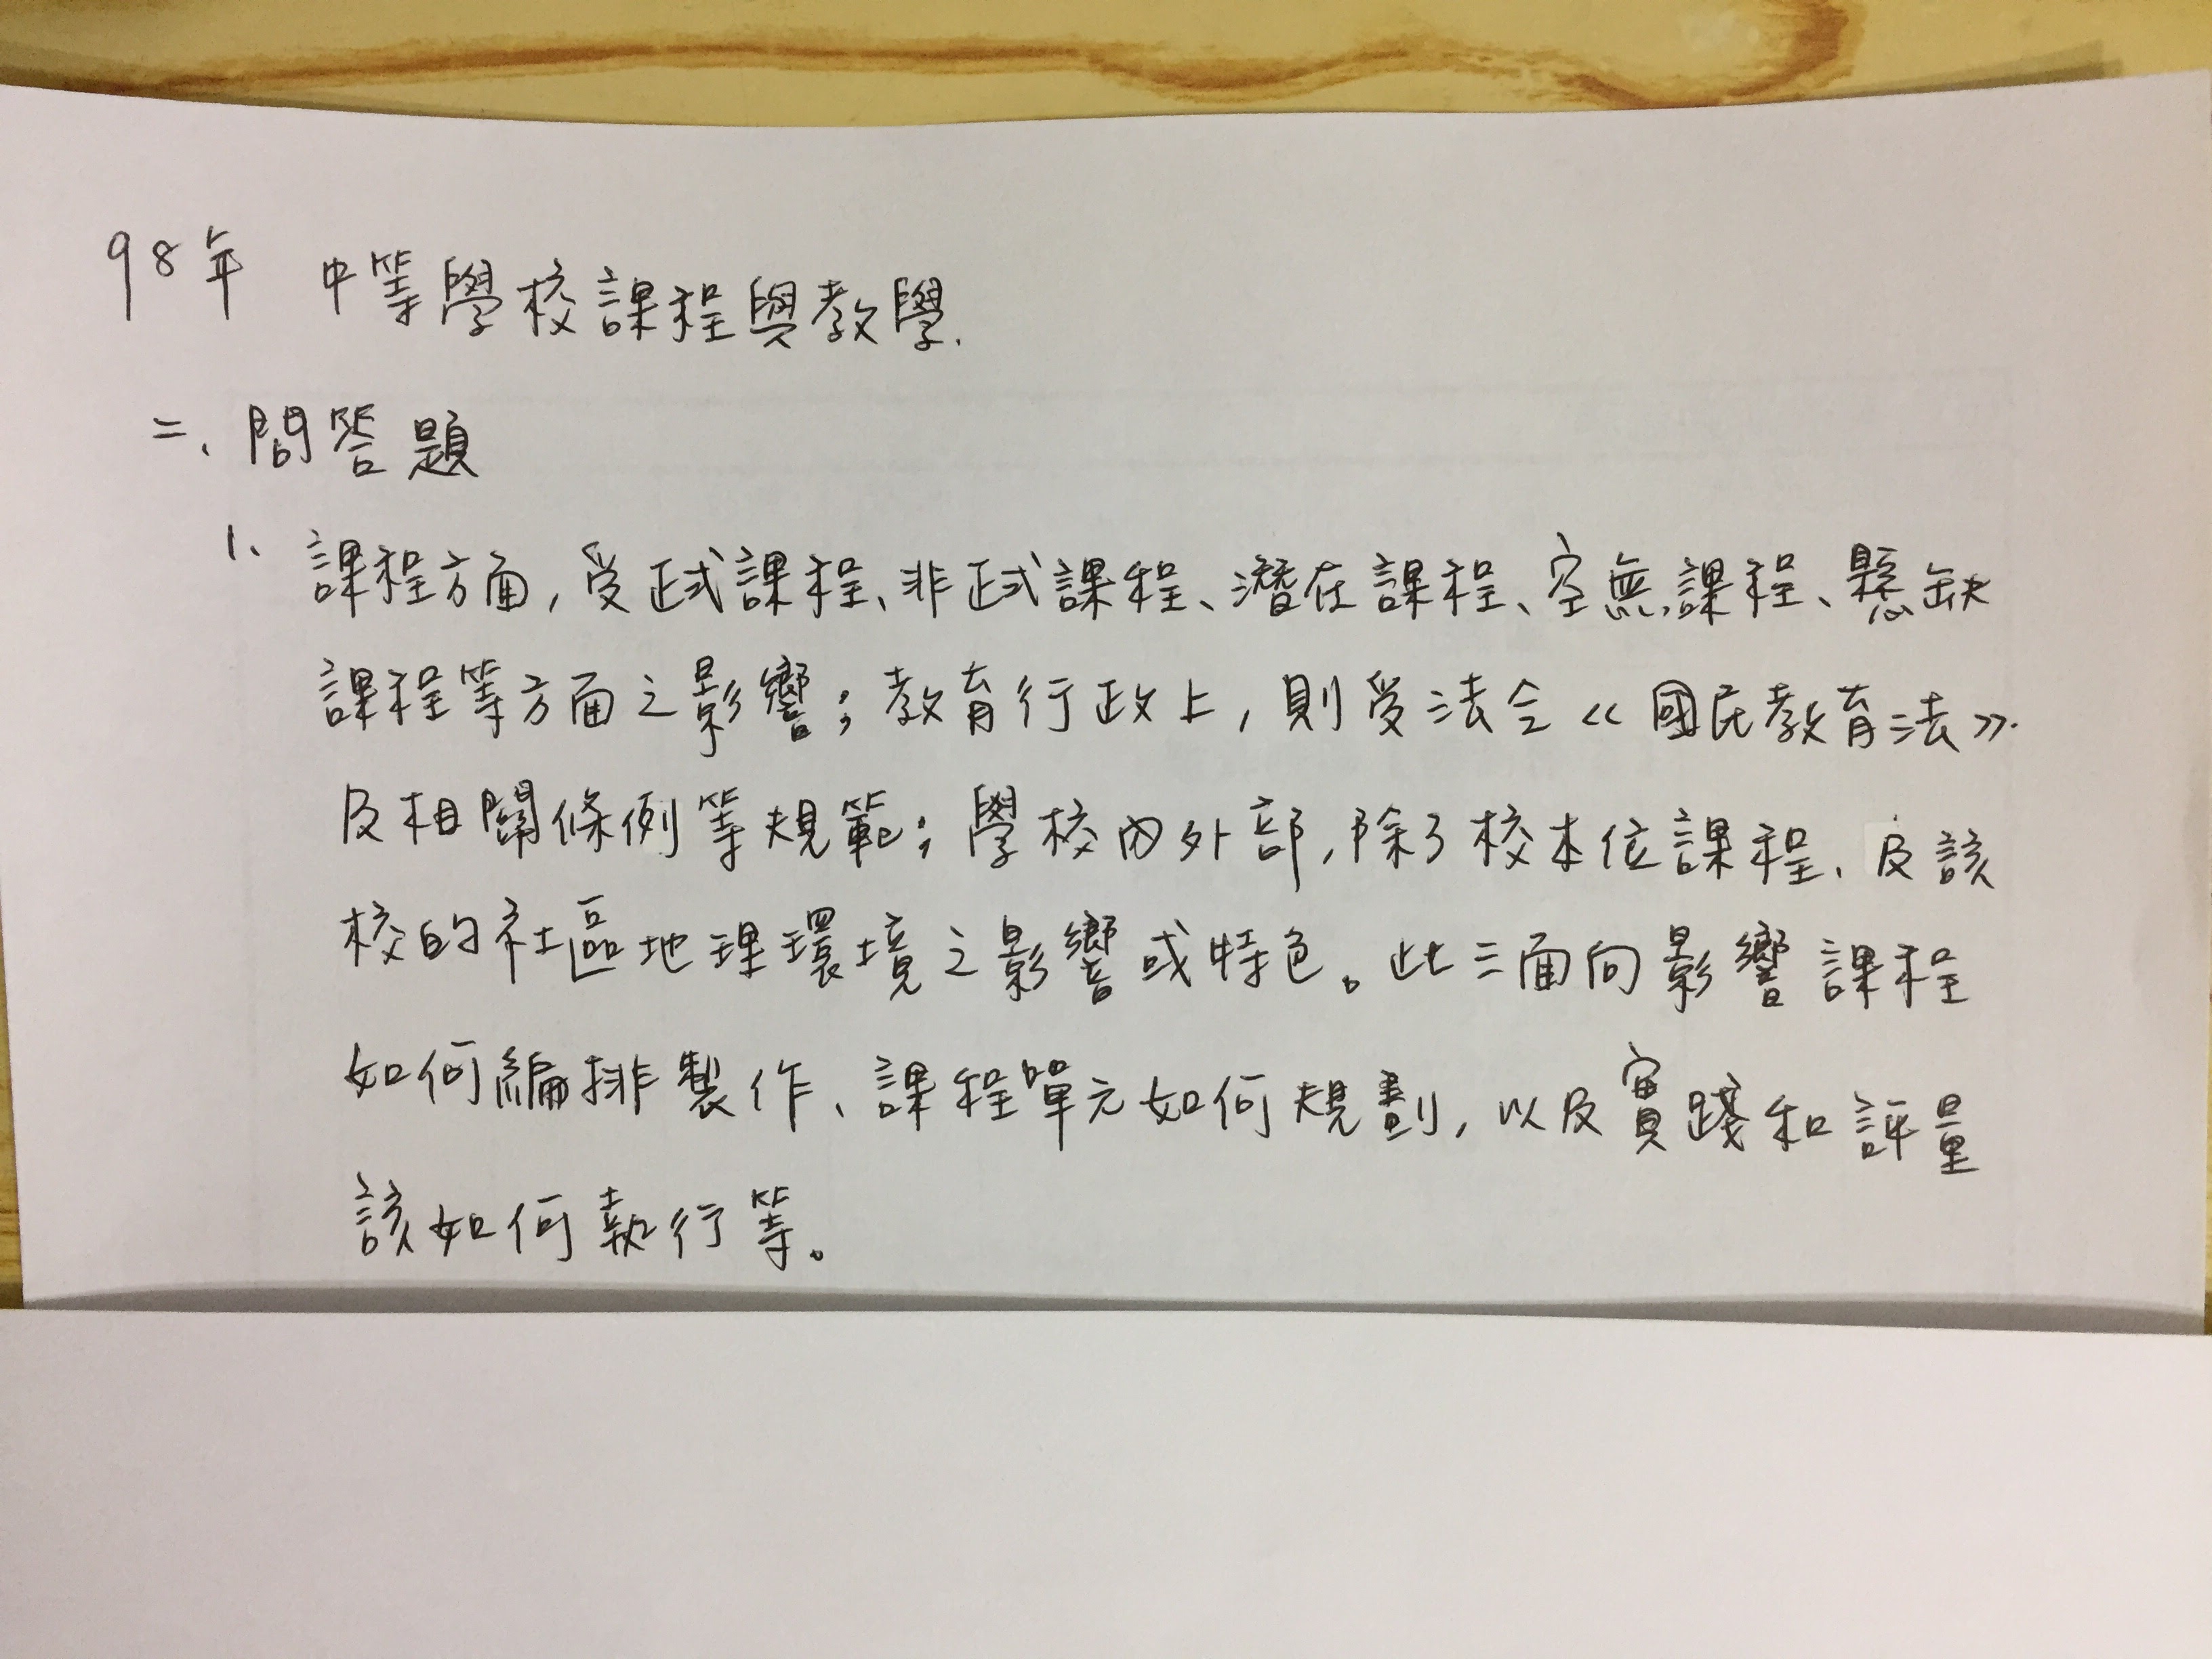 98年 中等學校課程與教學.
二、問答題
1、課程方面,受正式課程、非正式課程、潛在課程、空無課程、懸缺
課程等方面之影響;教育行政上,則受法令《國民教育法》
及相關條例等規範;學校內外部,除了校本位課程、及該
校的社區地理環境之影響或特色。此三面向影響課程
如何編排製作、課程單元如何規劃,以及實踐和評量
該如何執行等。